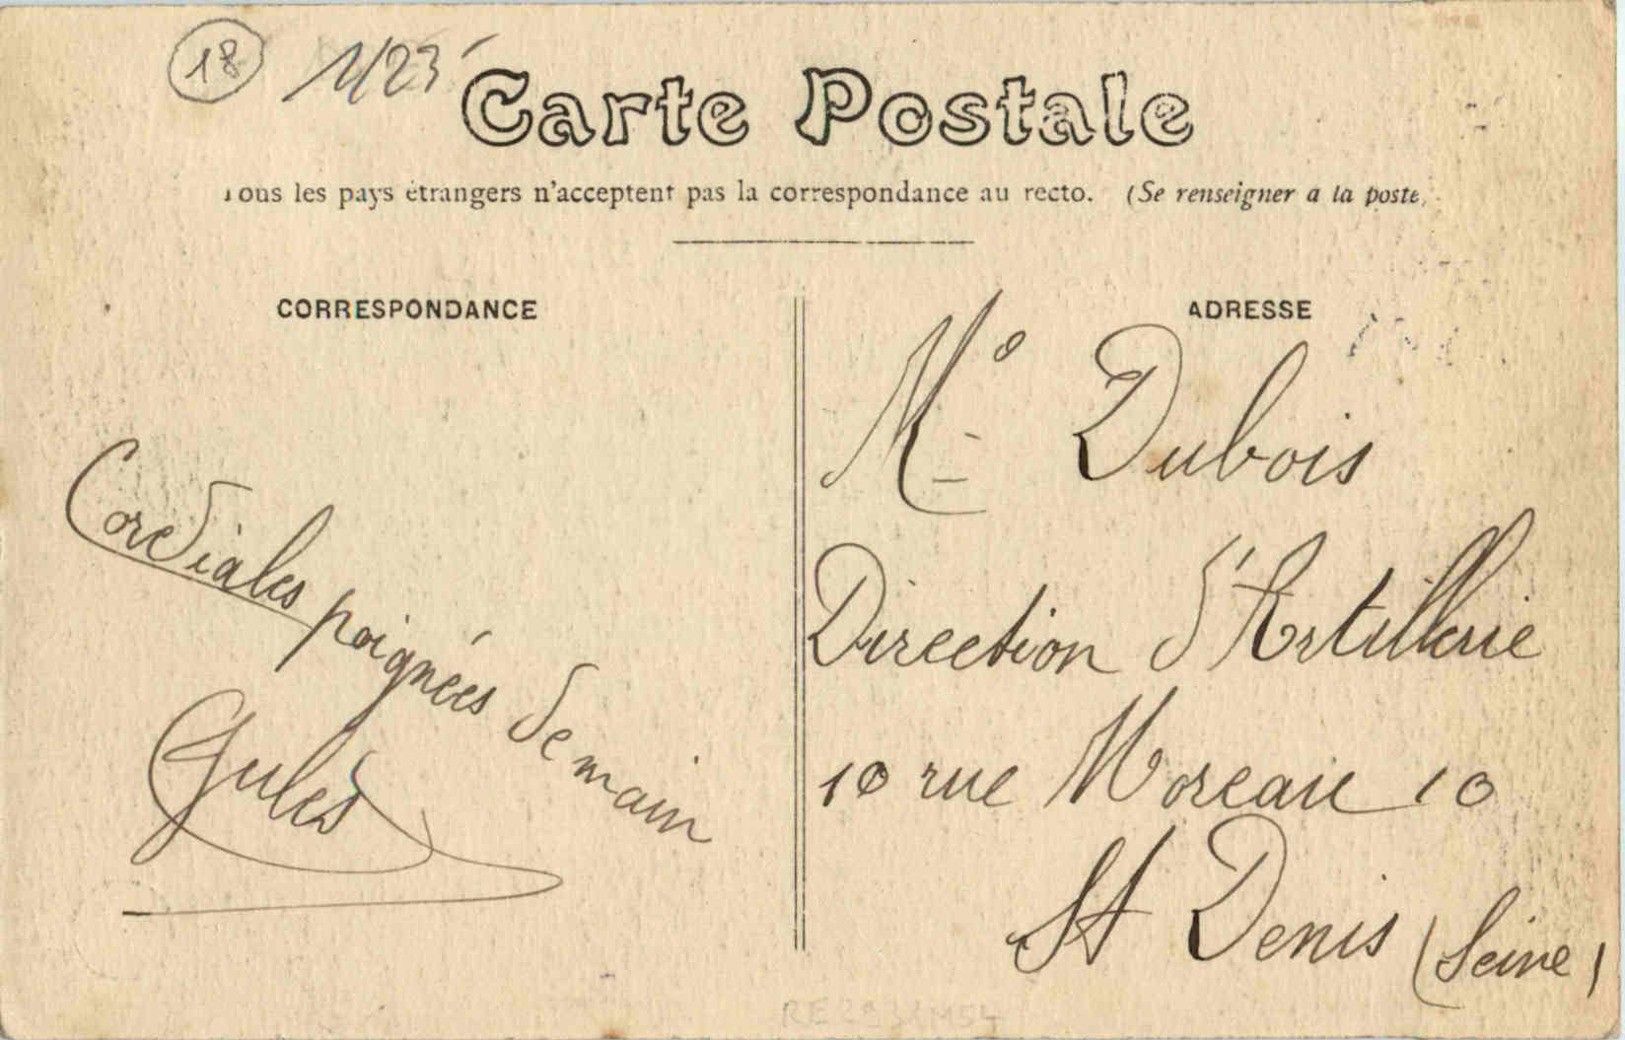 18 1423
Carte Postale
Tous les pays étrangers n'acceptent pas la correspondance au recto. (Se renseigner a la poste)
CORRESPONDANCE
Cordiales poignées de main
Jules
ADRESSE
Mr Dubois
Direction d'Artillerie
10 rue Moreau 10
St Denis (Seine)